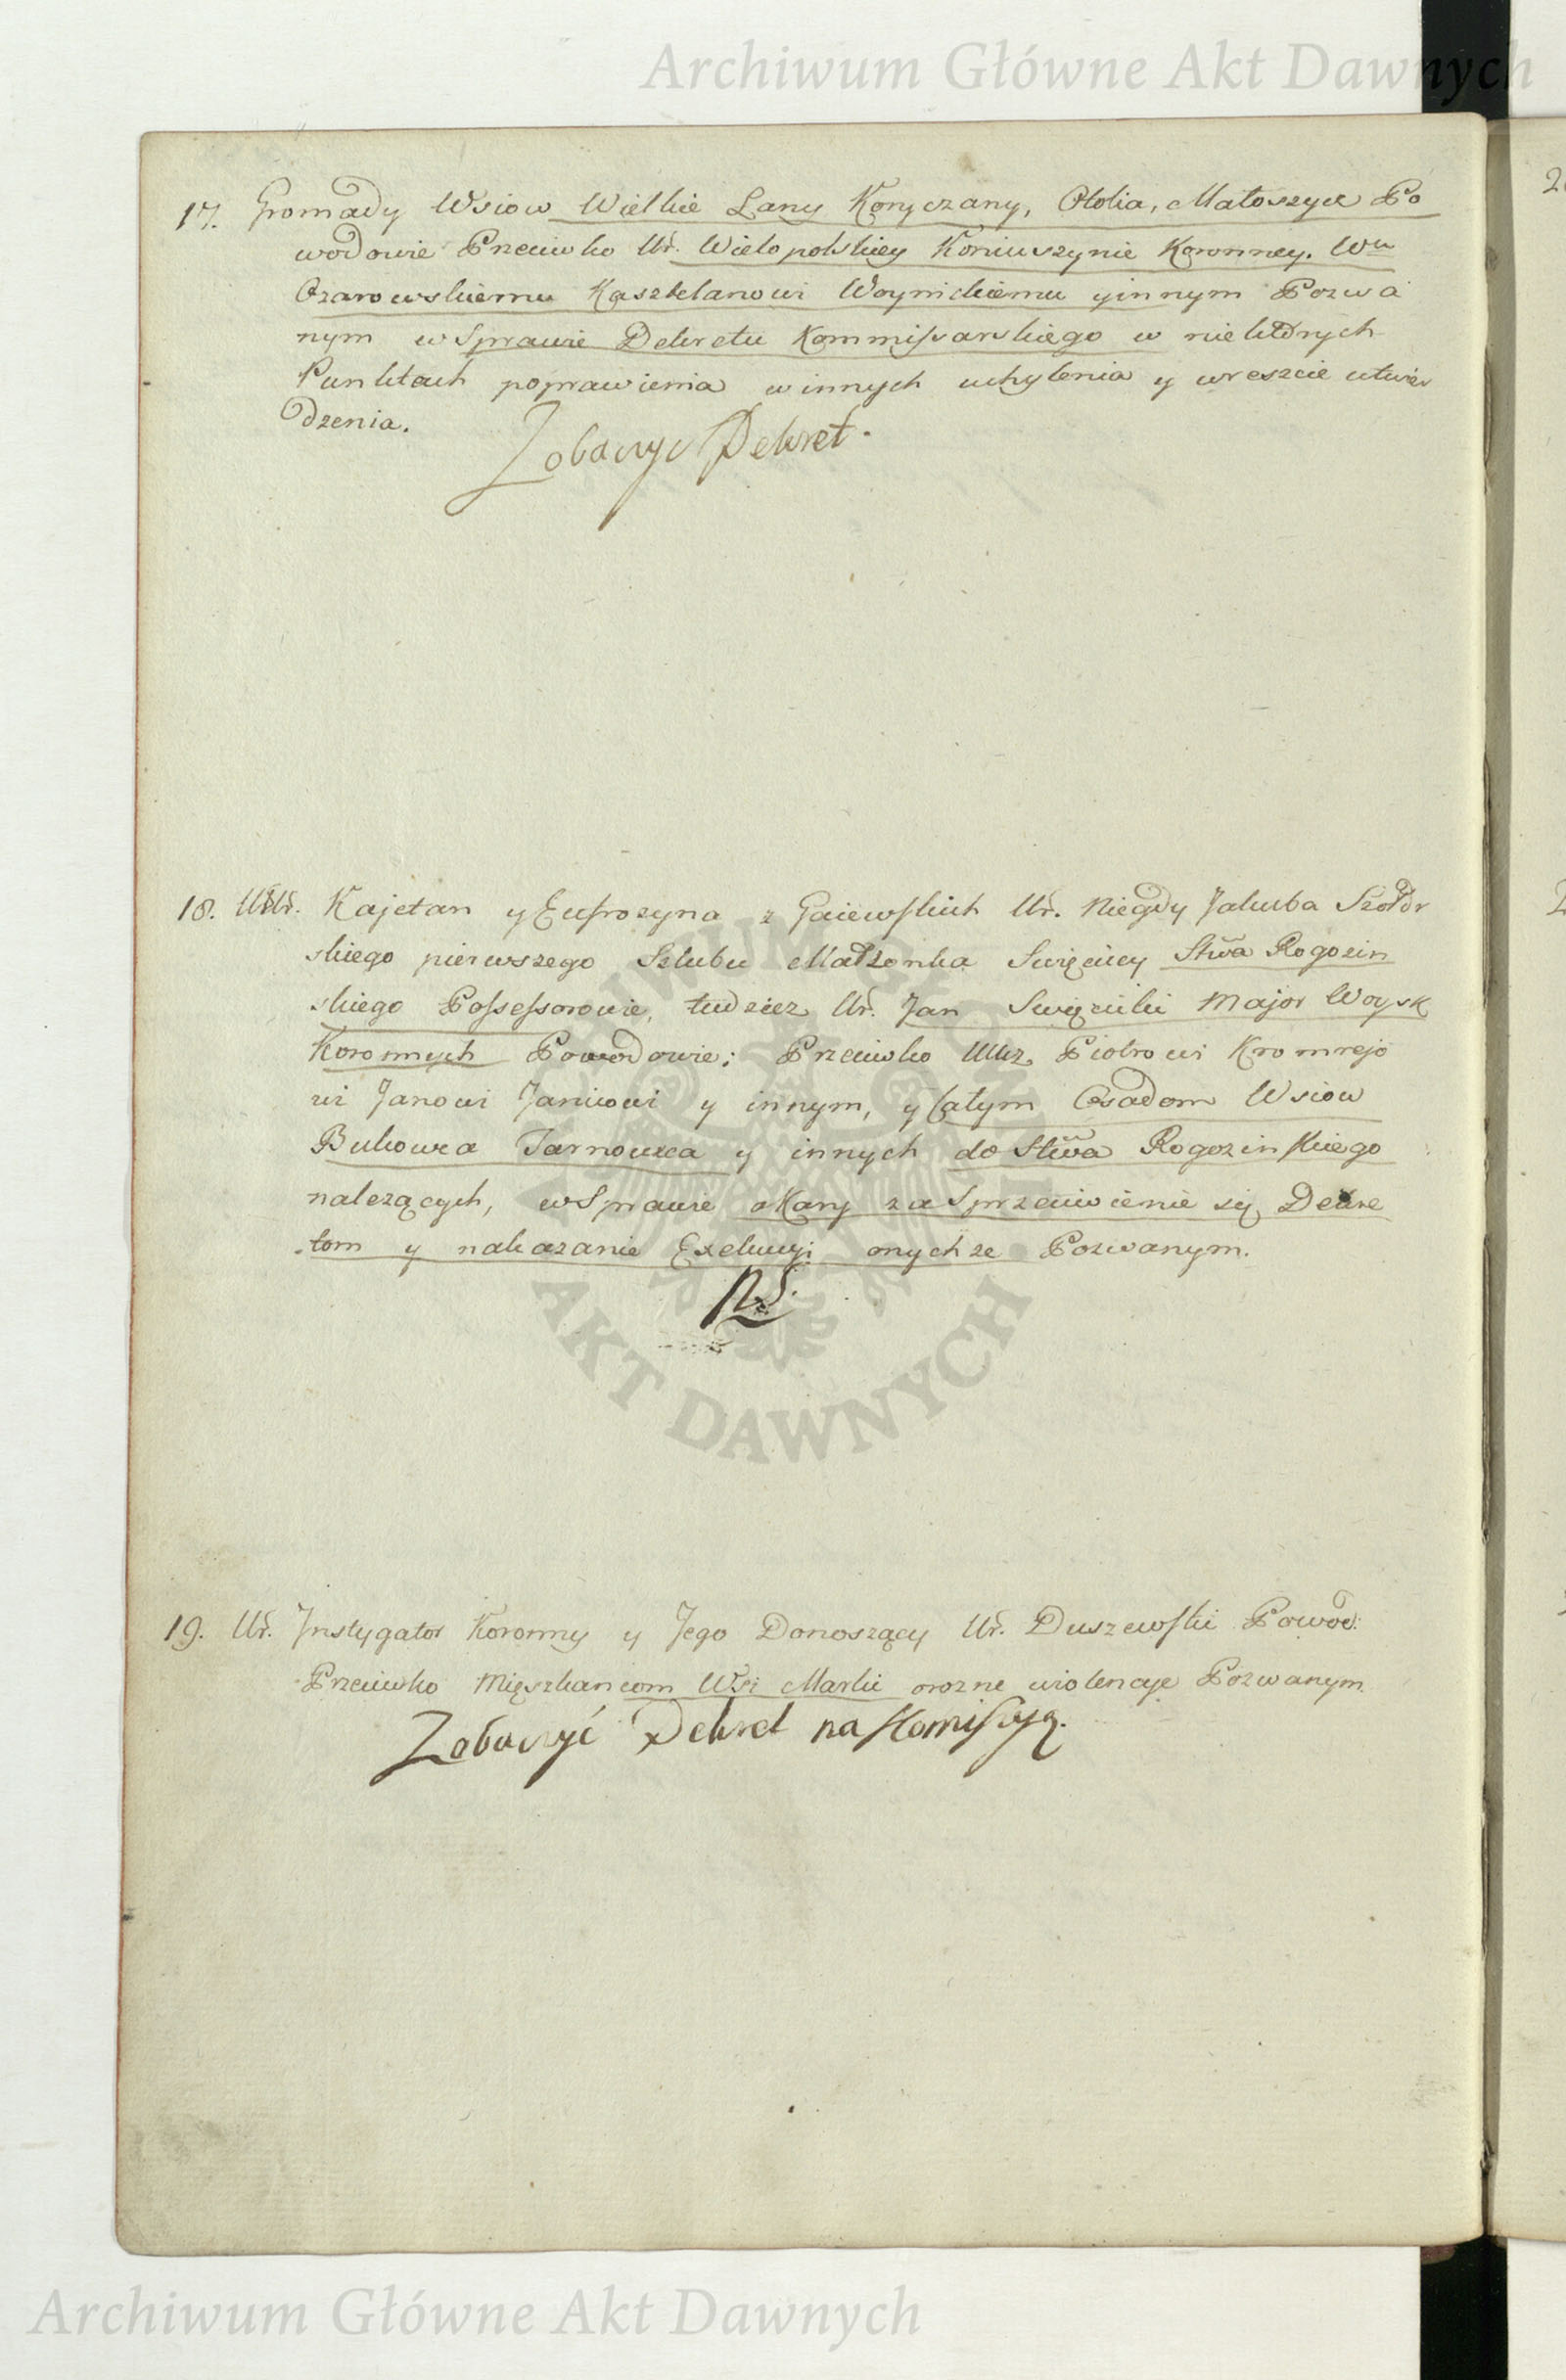 Archiwum Główne Akt Dawnych
17. Gromady Wsiow Wielkie Lany Koryczany, Otolia, Matoszyce Po
wodowie Przeciwko Ur. Wielopolskiey Koniuszynie Koronney. Wu
Ozarowskiemu Kasztelanowi Woynickiemu y innym Pozwa
nym w Sprawie Dekretu Kommissarskiego w niektórych
Punktach poprawienia w innych uchylenia y wreszcie utwier
dzenia.
Zobaczyc Dekret.
18. UUr. Kajetan y Eufrozyna z Gaiewskich Ur. Niegdy Jakuba Szołdr
skiego pierwszego Szlubu Małżonka Swięciccy Stwa Rogozin
skiego Possessorowie, tudziez Ur. Jan Swięcicki Major Woysk
Koronnych Powodowie; Przeciwko Uucz. Piotrowi Kromrejo
wi Janowi Janicowi y innym, y Całym Osadom Wsiow
Bukowca Tarnowca y innych do Stwa Rogozinskiego
nalezących, w Sprawie o Kary za Sprzeciwienie się Dekre
tom y nakazanie Exekucyi onychze Pozwanym.
NS.
19. Ur. Instygator Koronny y Jego Donoszący Ur. Duszewski Powod:
Przeciwko Mięszkancom Wsi Marki o rozne wiolencye Pozwanym
Zobaczyć Dekret na Komissyą.
AKT DAWNYCH
Archiwum Główne Akt Dawnych